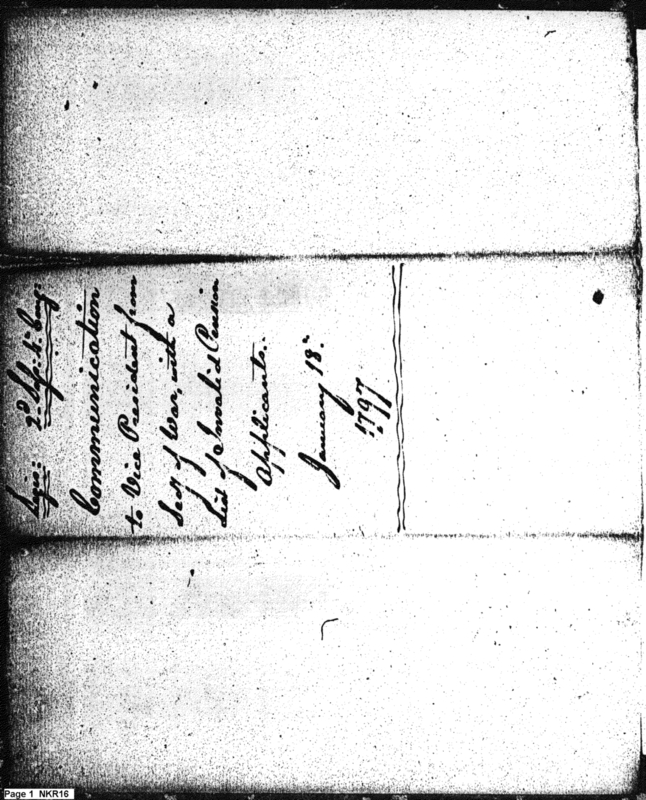 Legis: 2d. Ses: 4: Cong:
Communication
to Vice President from
Secy of War, with a
List of Invalid Pension
Applicants.
January 18th
1797
Page 1 NKR16